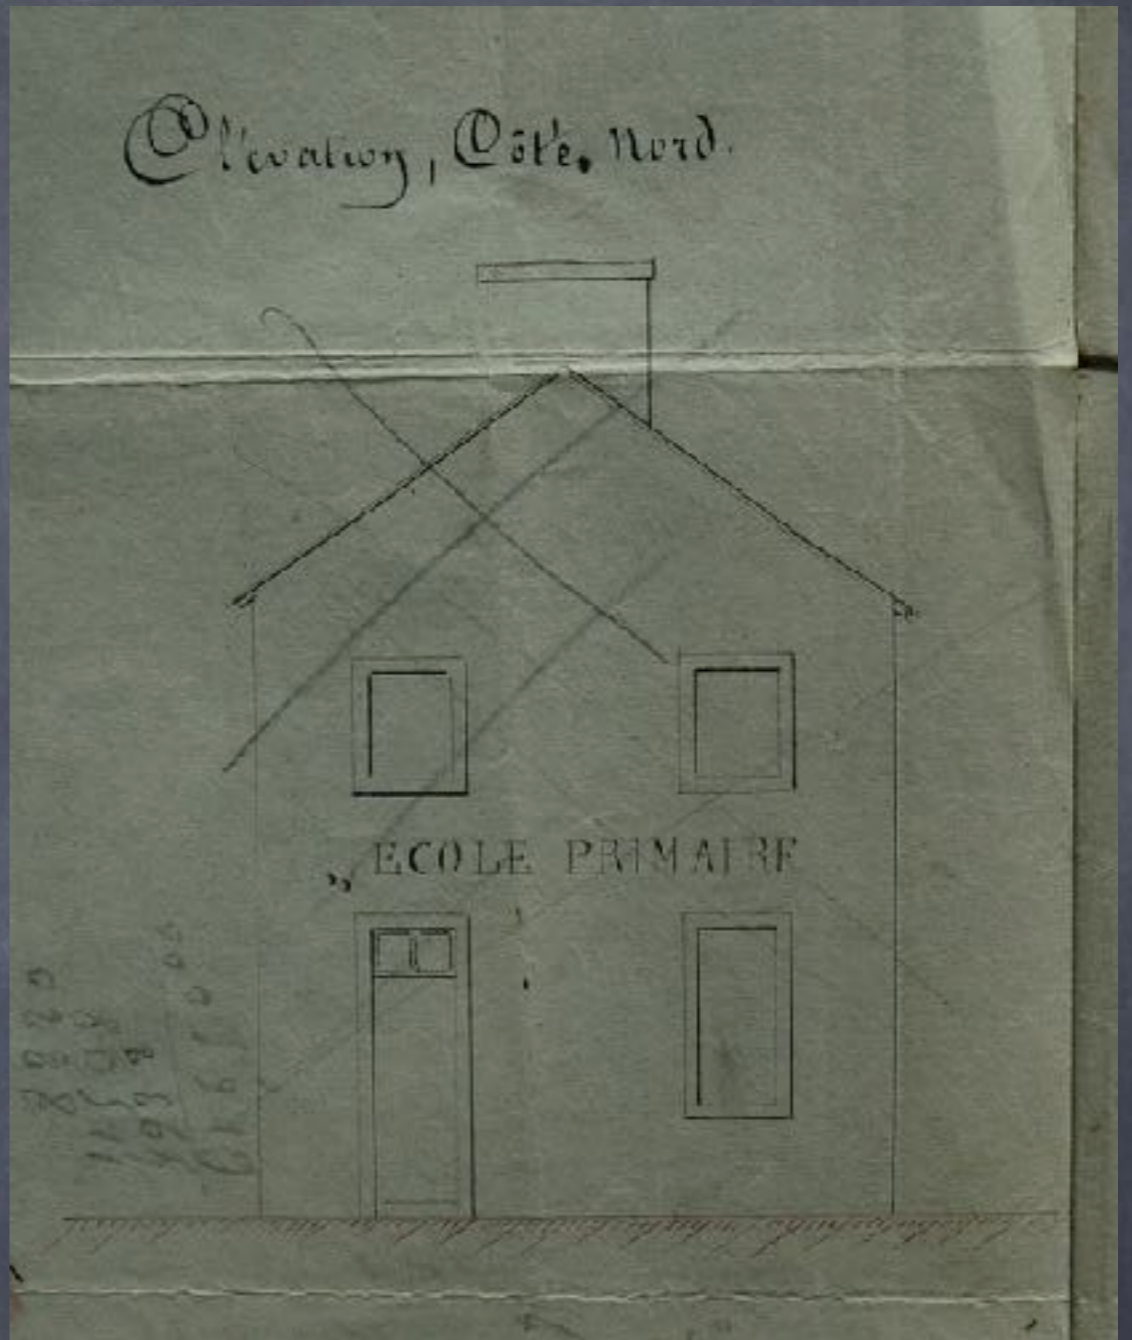 Élévation, Côté Nord.
ECOLE PRIMAIRE